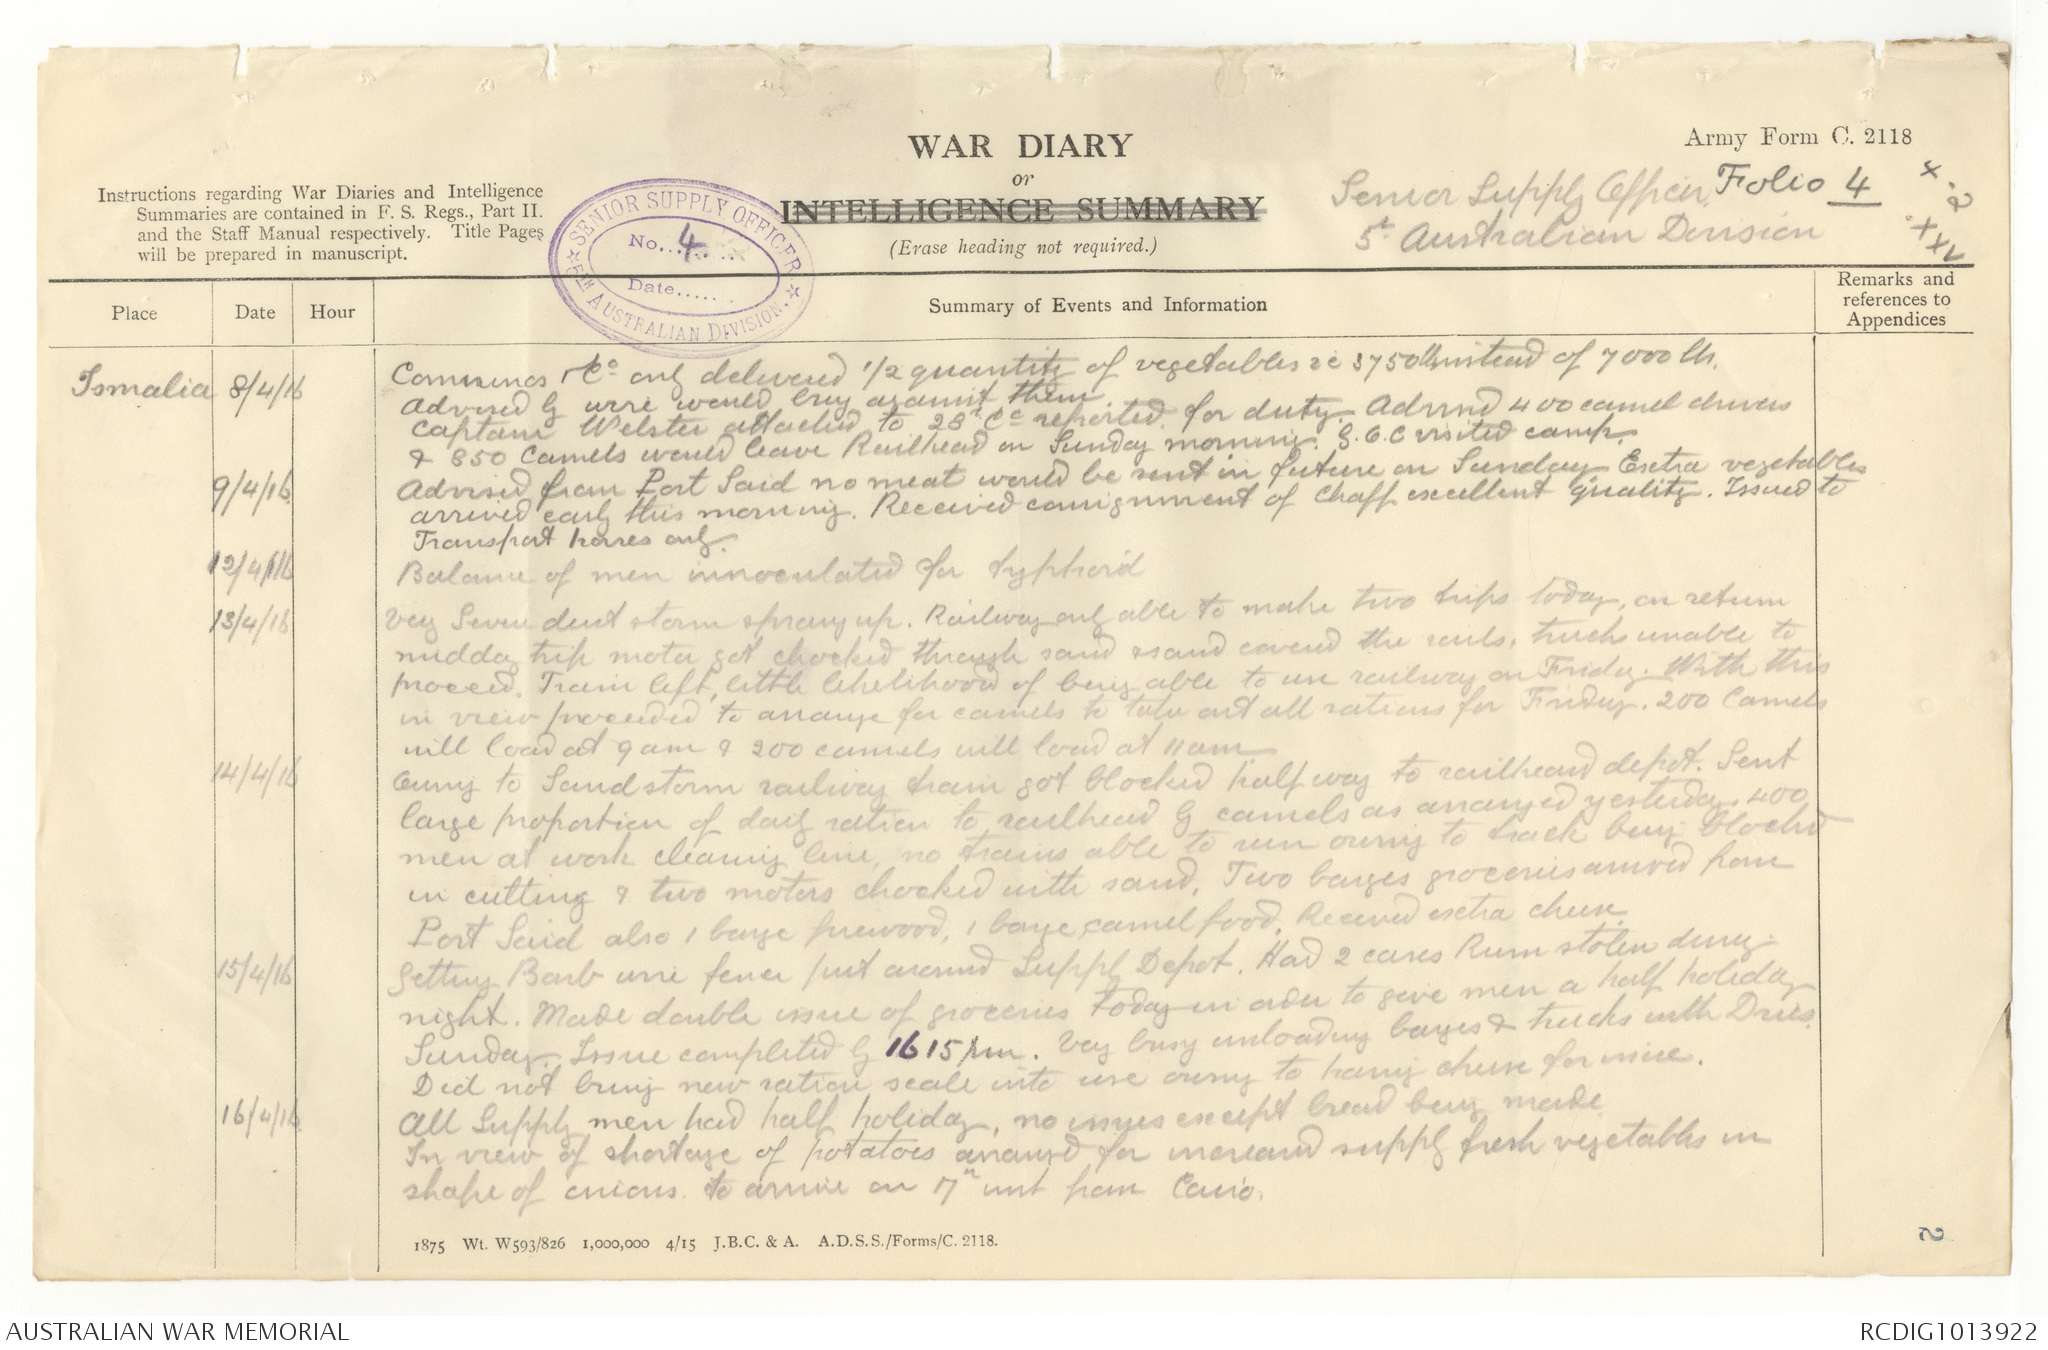 WAR DIARY
or
INTELLIGENCE SUMMARY
(Erase heading not required.)
Army Form C. 2118
Senior Supply Officer Folio 4
5th Australian Division
Instructions regarding War Diaries and Intelligence
Summaries are contained in F. S. Regs., Part II.
and the Staff Manual respectively. Title Pages
will be prepared in manuscript.
SENIOR SUPPLY OFFICER
No. 4
Date
5TH AUSTRALIAN DIVISION.
Place Date Hour Summary of Events and Information Remarks and
references to
Appendices
Ismalia 8/4/16 & Co only delivered 1/2 quantity of vegetables ie 3750 lb instead of 7000 lb.
Advised by wire would buy against them.
Captain Webster attached to 28th Co reported for duty. Advised 400 camel drivers
& 850 Camels would leave Railhead on Sunday morning. G.O.C visited camp.
9/4/16 Advised from Port Said no meat would be sent in future on Sunday. Extra vegetables
arrived early this morning. Received consignment of Chaff excellent quality. Issued to
Transport horses only.
12/4/16 Balance of men innoculated for typhoid
13/4/16 Very Severe dust storm sprang up. Railway only able to make two trips today, on return
midday trip motor got chocked through sand & sand covered the rails, trucks unable to
proceed. Train left, little likelihood of being able to use railway on Friday. With this
in view proceeded to arrange for camels to take out all rations for Friday. 200 Camels
will load at 9 am & 200 camels will load at 11 am.
14/4/16 Owing to Sandstorm railway train got blocked half way to railhead depot. Sent
large proportion of daily ration to railhead by camels as arranged yesterday. 400
men at work clearing line, no trains able to run owing to track being blocked
in cutting & two motors chocked with sand. Two barges groceries arrived from
Port Said also 1 barge firewood, 1 barge camel food. Received extra cheese.
15/4/16 Getting Barb wire fence put around Supply Depot. Had 2 cases Rum stolen during
night. Made double issue of groceries today in order to give men a half holiday
Sunday. Issue completed by 1615 pm. Very busy unloading barges & trucks with
Did not bring new ration scale into use owing to having cheese for issue.
16/4/16 All Supply men had half holiday, no issues except bread being made.
In view of shortage of potatoes arranged for increased supply fresh vegetables in
shape of onions to arrive on 17th inst from Cairo.
1875 Wt. W593/826 1,000,000 4/15 J.B.C. & A. A.D.S.S./Forms/C. 2118.
2
AUSTRALIAN WAR MEMORIAL RCDIG1013922